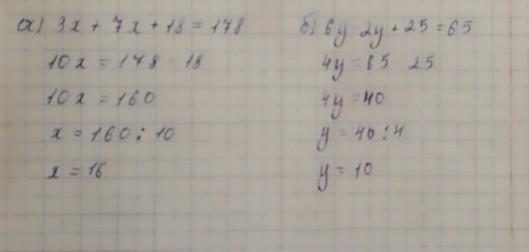 а) 3x + 7x + 18 = 178
10x = 178 - 18
10x = 160
x = 160 : 10
x = 16
б) 6y - 2y + 25 = 65
4y = 65 - 25
4y = 40
y = 40 : 4
y = 10